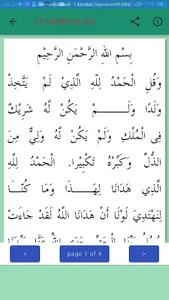 بِسْمِ اللّٰهِ الرَّحْمٰنِ الرَّحِيْمِ
وَقُلِ الْحَمْدُ لِلّٰهِ الَّذِيْ لَمْ يَتَّخِذْ
وَلَدًا وَلَمْ يَكُنْ لَّهُ شَرِيْكٌ
فِي الْمُلْكِ وَلَمْ يَكُنْ لَّهُ وَلِيٌّ مِنَ
الذُّلِّ وَكَبِّرْهُ تَكْبِيْرًا. اَلْحَمْدُ لِلّٰهِ
الَّذِي هَدَانَا لِهٰذَا وَمَا كُنَّا
لِنَهْتَدِيَ لَوْلَا أَنْ هَدَانَا اللّٰهُ لَقَدْ جَاءَتْ
<
page 1 of 4
>